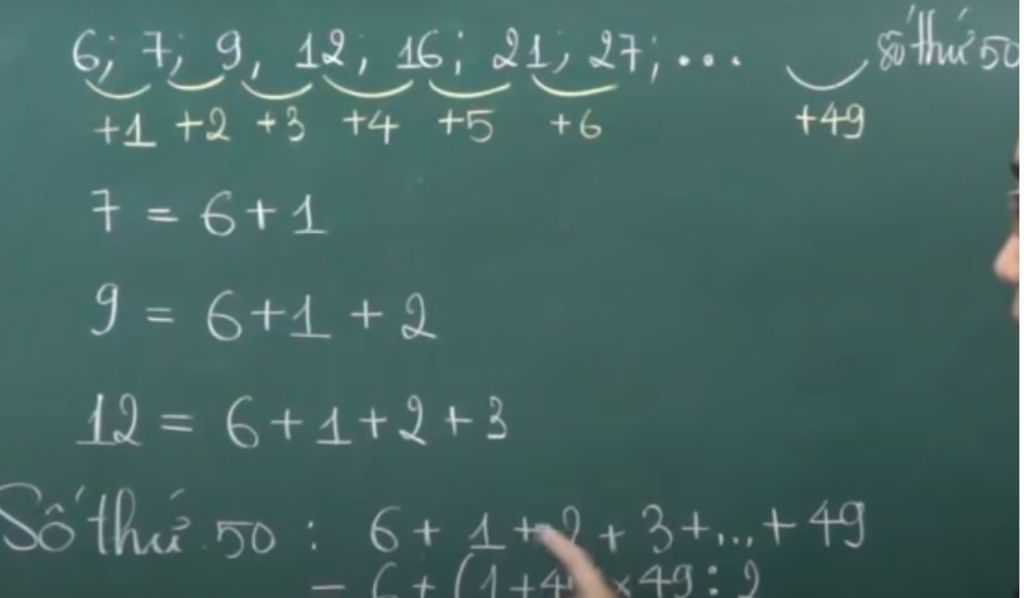 6; 7; 9, 12; 16; 21; 27; ... số thứ 50
+1 +2 +3 +4 +5 +6 +49
7 = 6+1
9 = 6+1+2
12 = 6+1+2+3
Số thứ 50 : 6+1+2+3+...+49
= 6+(1+4 ×49:2